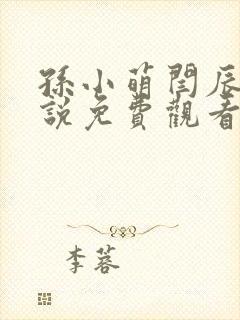 孫小萌閆辰
說免費觀看
李蓉